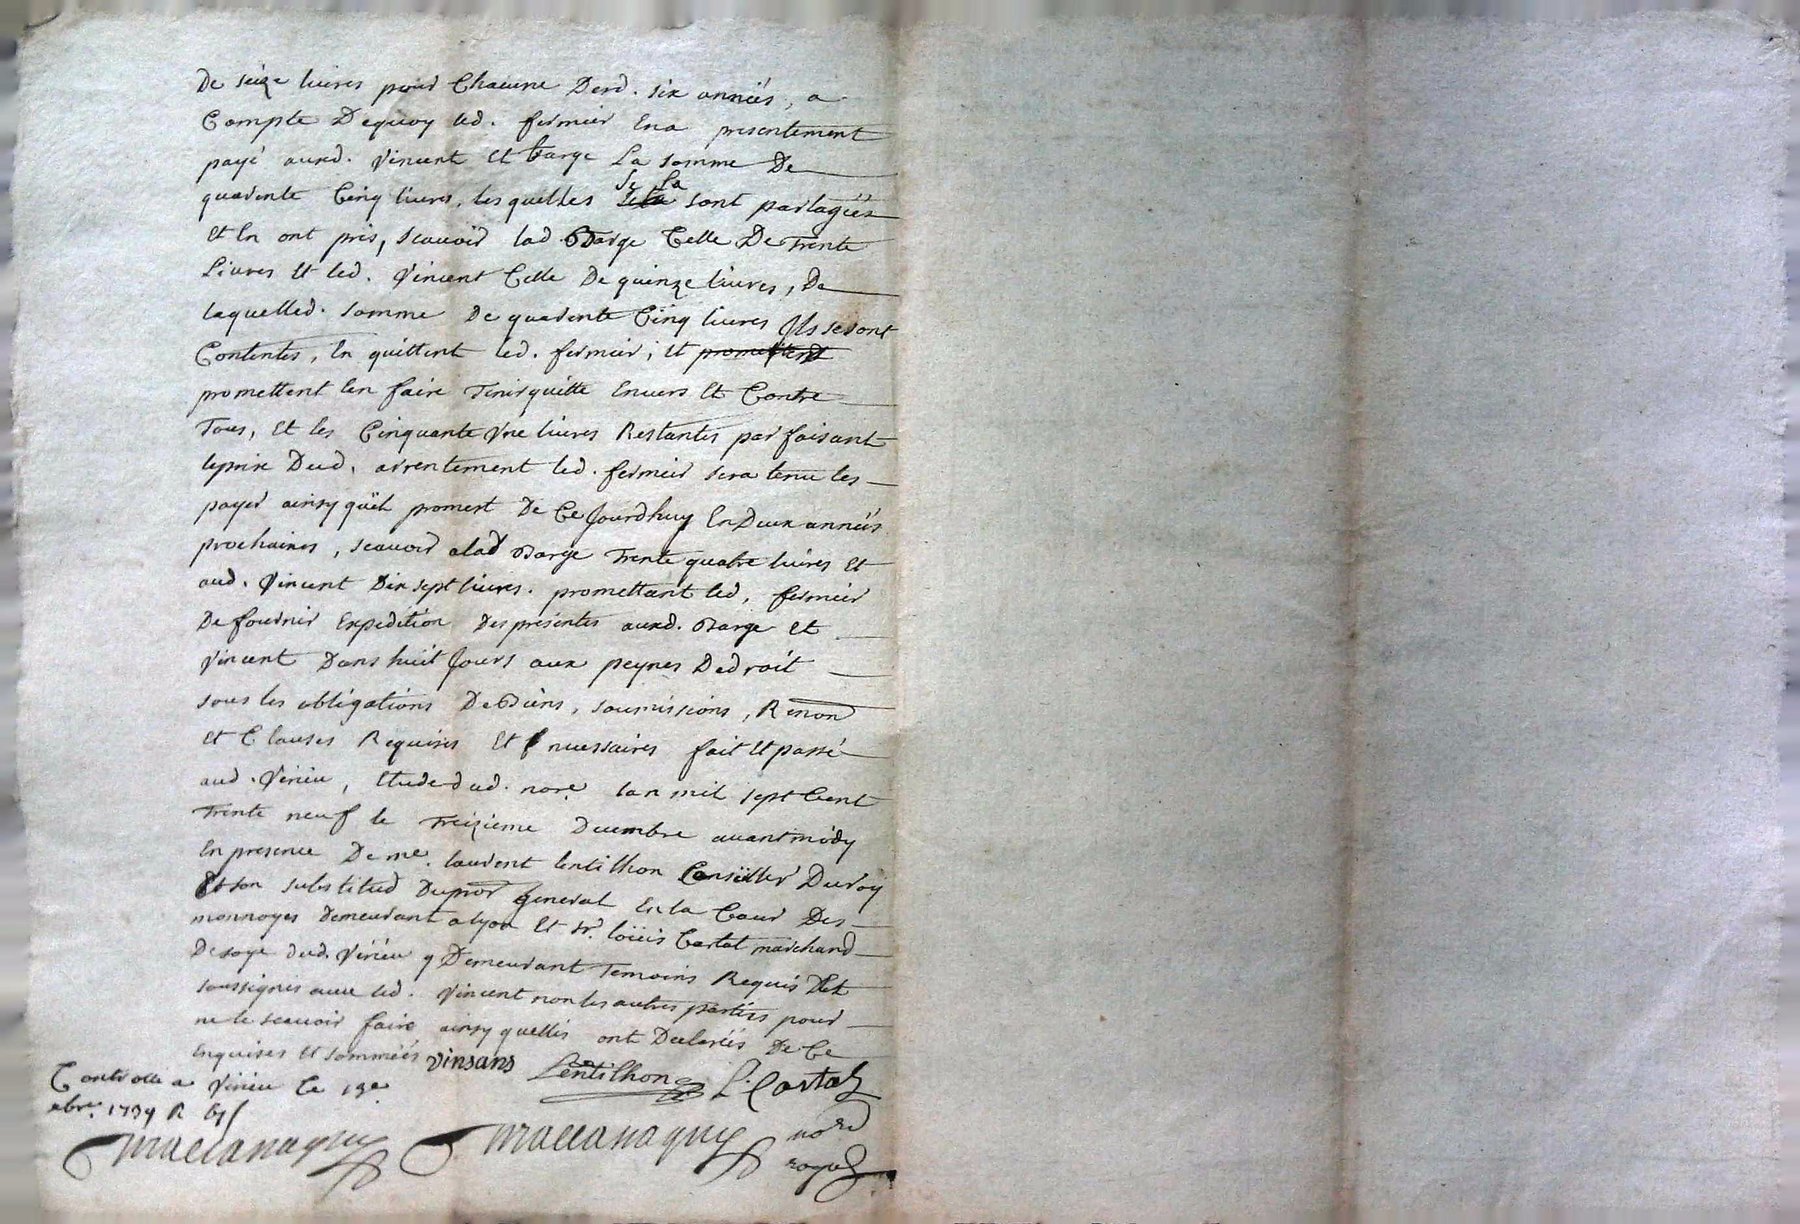 De seize livres pour Chacune Desd. six années, a
Compte Dequoy led. fermier En a presentement
payé auxd. Vincent et Barge La somme De
quarente Cinq livres, lesquelles Se La sont partagées
et En ont pris, scauoir lad. Barge Celle De Trente
Liures et led. Vincent Celle De quinze liures, De
laquelled. somme De quarente Cinq liures Ils se sont
Contentés, En quittent led. fermier, et promettent
promettent l'en faire Tenir quitte Enuers Et Contre
Tous, Et les Cinquante Vne liures Restantes parfaisant
le prix Dud. arrentement led. fermier sera tenu les
payer ainsy quil promest De Ce Jourdhuy En Deux années
prochaines, scauoir a lad Barge Trente quatre liures Et
aud. Vincent Dix sept liures. promettant led. fermier
De fournir Expedition Des présentes auxd. Barge et
Vincent Dans huit Jours aux peynes De droit
sous les obligations De Biens, soumissions, Renon
et Clauses Requises Et necessaires fait et passé
aud. Virieu, Etude dud. nore. lan mil sept Cent
Trente neuf le Treizieme Decembre auant midy
En presence De me. laurent lentilhon Conseiller Du roy
Et son substitud Du pror general En la Cour Des
monnoyes Demeurant a lyon Et sr. loüis Cartal marchand
De soye dud. Virieu y Demeurant Temoins Requis Et
soussignes auec led. Vincent non les autres parties pour
ne le scauoir faire ainsy quelles ont Declarées De Ce
Enquises Et sommées vinsans Lentilhon L. Cartal
Controlle a Virieu Ce 13e.
xbre. 1739 R
nore
royal